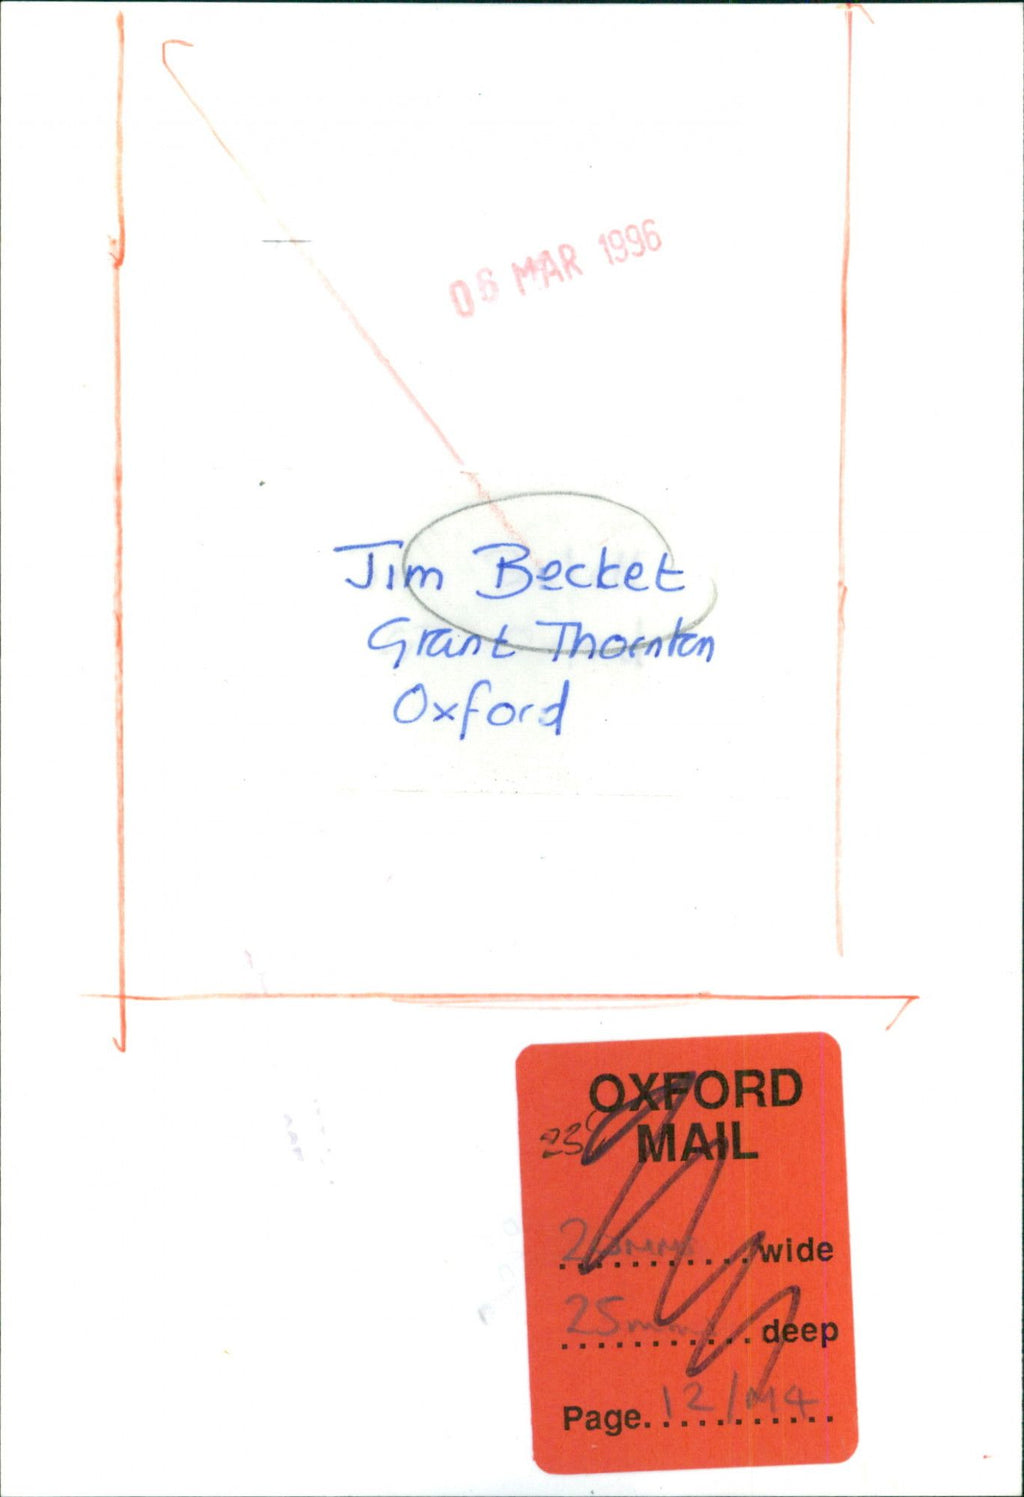 06 MAR 1996
Jim Becket
Grant Thornton
Oxford
OXFORD
MAIL
wide
25mm deep
Page. 12/M4